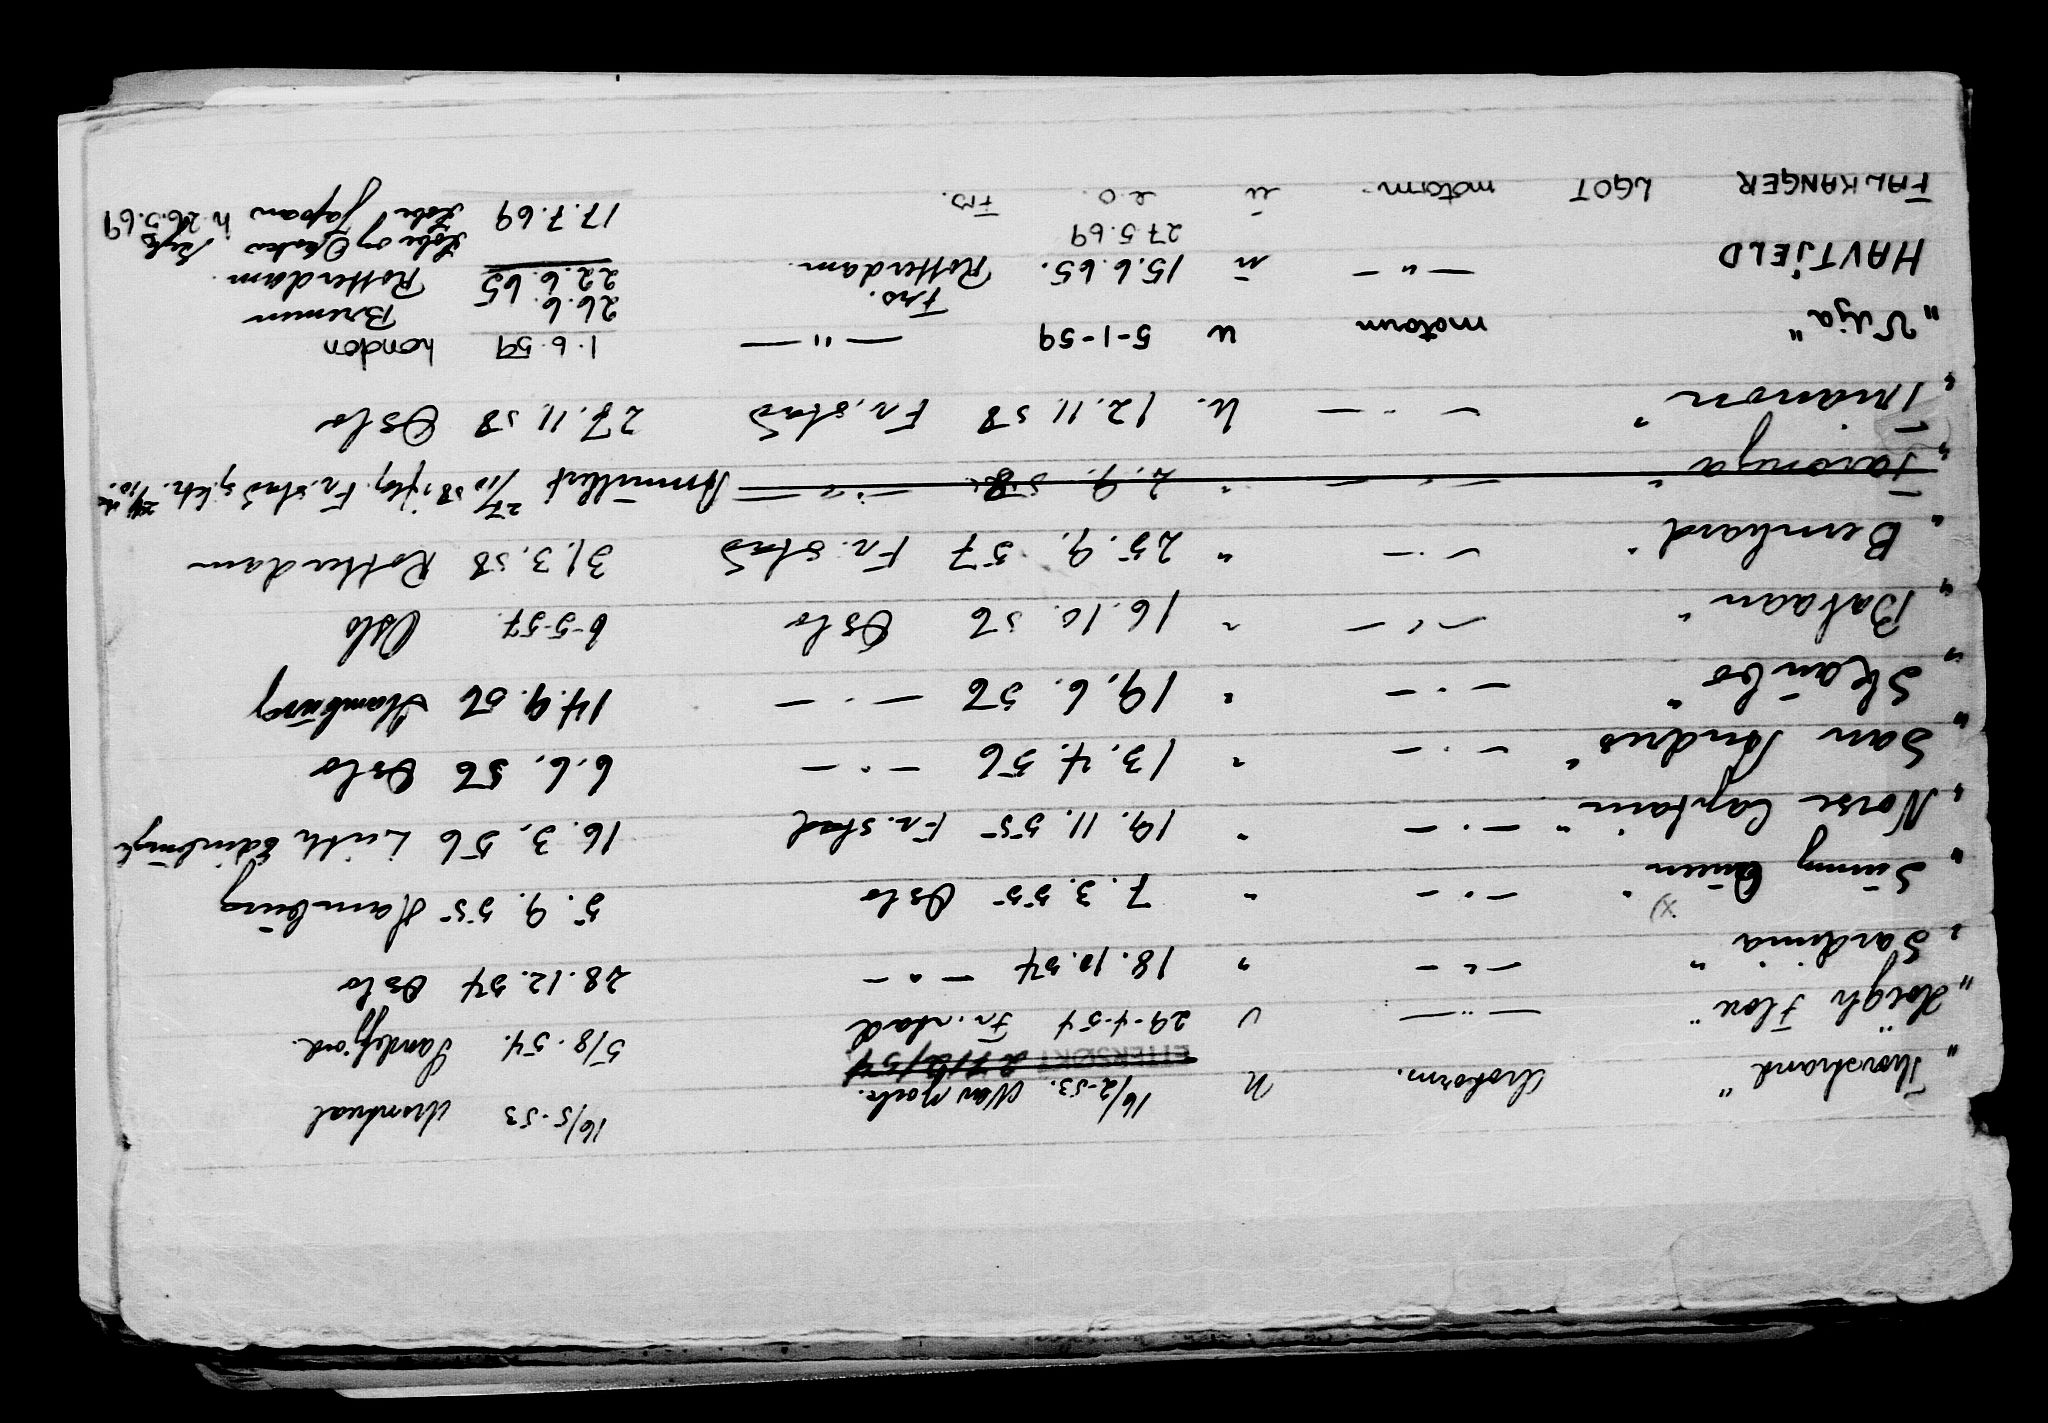 16/2-53. New York. 16/5-53 Montreal
"Thorstrand" Motorm. n ETTERSØKT 27/2/54
"Høegh Flou" — " — u 29-4-54 Fr.stad 5/8.54. Sandefjord.
"Sardinia" — " — " 18.10.54 — " — 28.12.54 Oslo
x)
"Sunny Queen" — " — " 7.3.55 Oslo 5.9.55 Hamburg
"Norse Captain" — " — " 19.11.55 Fr.stad 16.3.56 Leith Edinburgh
"San Andres" — " — " 13.4.56 — " — 6.6.56 Oslo
"Skaubo" — " — " 19.6.56 — " — 14.9.56 Hamburg
"Bataan" — " — " 16.10.56 Oslo 6-5-57. Oslo
"Bernhard" — " — " 25.9.57 Fr.stad 31.3.58 Rotterdam
"Taronga" — " — " 2.9.58. — " — Annullert 27/10 58, jfg. Fr.stad s. brev 24/10.
"Trianon" — " — u. 12.11.58 Fr.stad 27.11.58 Oslo
"Vilja" motorm u 5-1-59 — " — 1.6.59 London
Fro. 26.6.65 Bremen
HAVTJELD — " — n 15.6.65. Rotterdam. 22.6.65 Rotterdam.
27.5.69 Kobe og Osaka
FALKANGER LGOT motorm. u e.o. Fro. 17.7.69 Kobe Japan h. 26.5.69